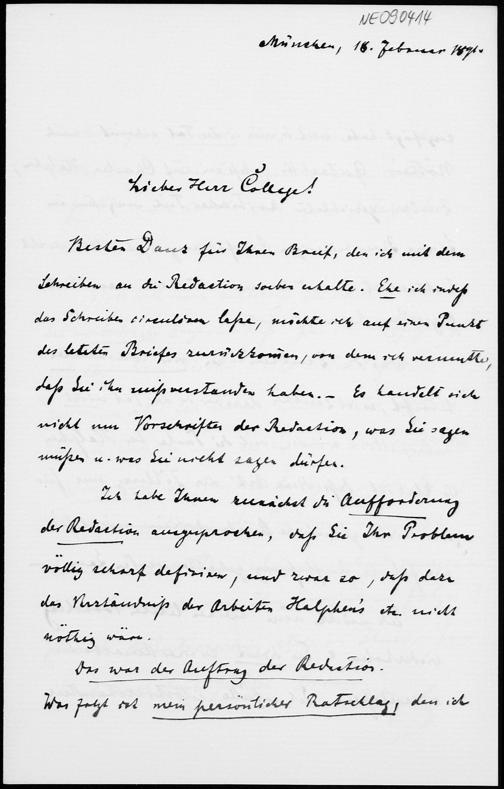 NE090414
München, 18. Februar 1891.
Lieber Herr College!
Besten Danc für Ihren Brief, den ich mit dem
Schreiben an die Redaction soeben erhalte. Ehe ich indeß
das Schreiben circuliren laße, möchte ich auf einen Punkt
des letzten Briefes zurückkomen, von dem ich vermuthe,
daß Sie ihn mißverstanden haben. – Es handelt sich
nicht um Vorschriften der Redaction, was Sie sagen
müßen u. was Sie nicht sagen dürfen.
Ich habe Ihnen zunächst die Aufforderung
der Redaction ausgesprochen, daß Sie Ihr Problem
völlig scharf definiren, und zwar so, daß dazu
das Verständniß der Arbeiten Halphen's etc. nicht
nöthig wäre.
Das war der Auftrag der Redaction.
Was folgt ist mein persönlicher Ratschlag, den ich